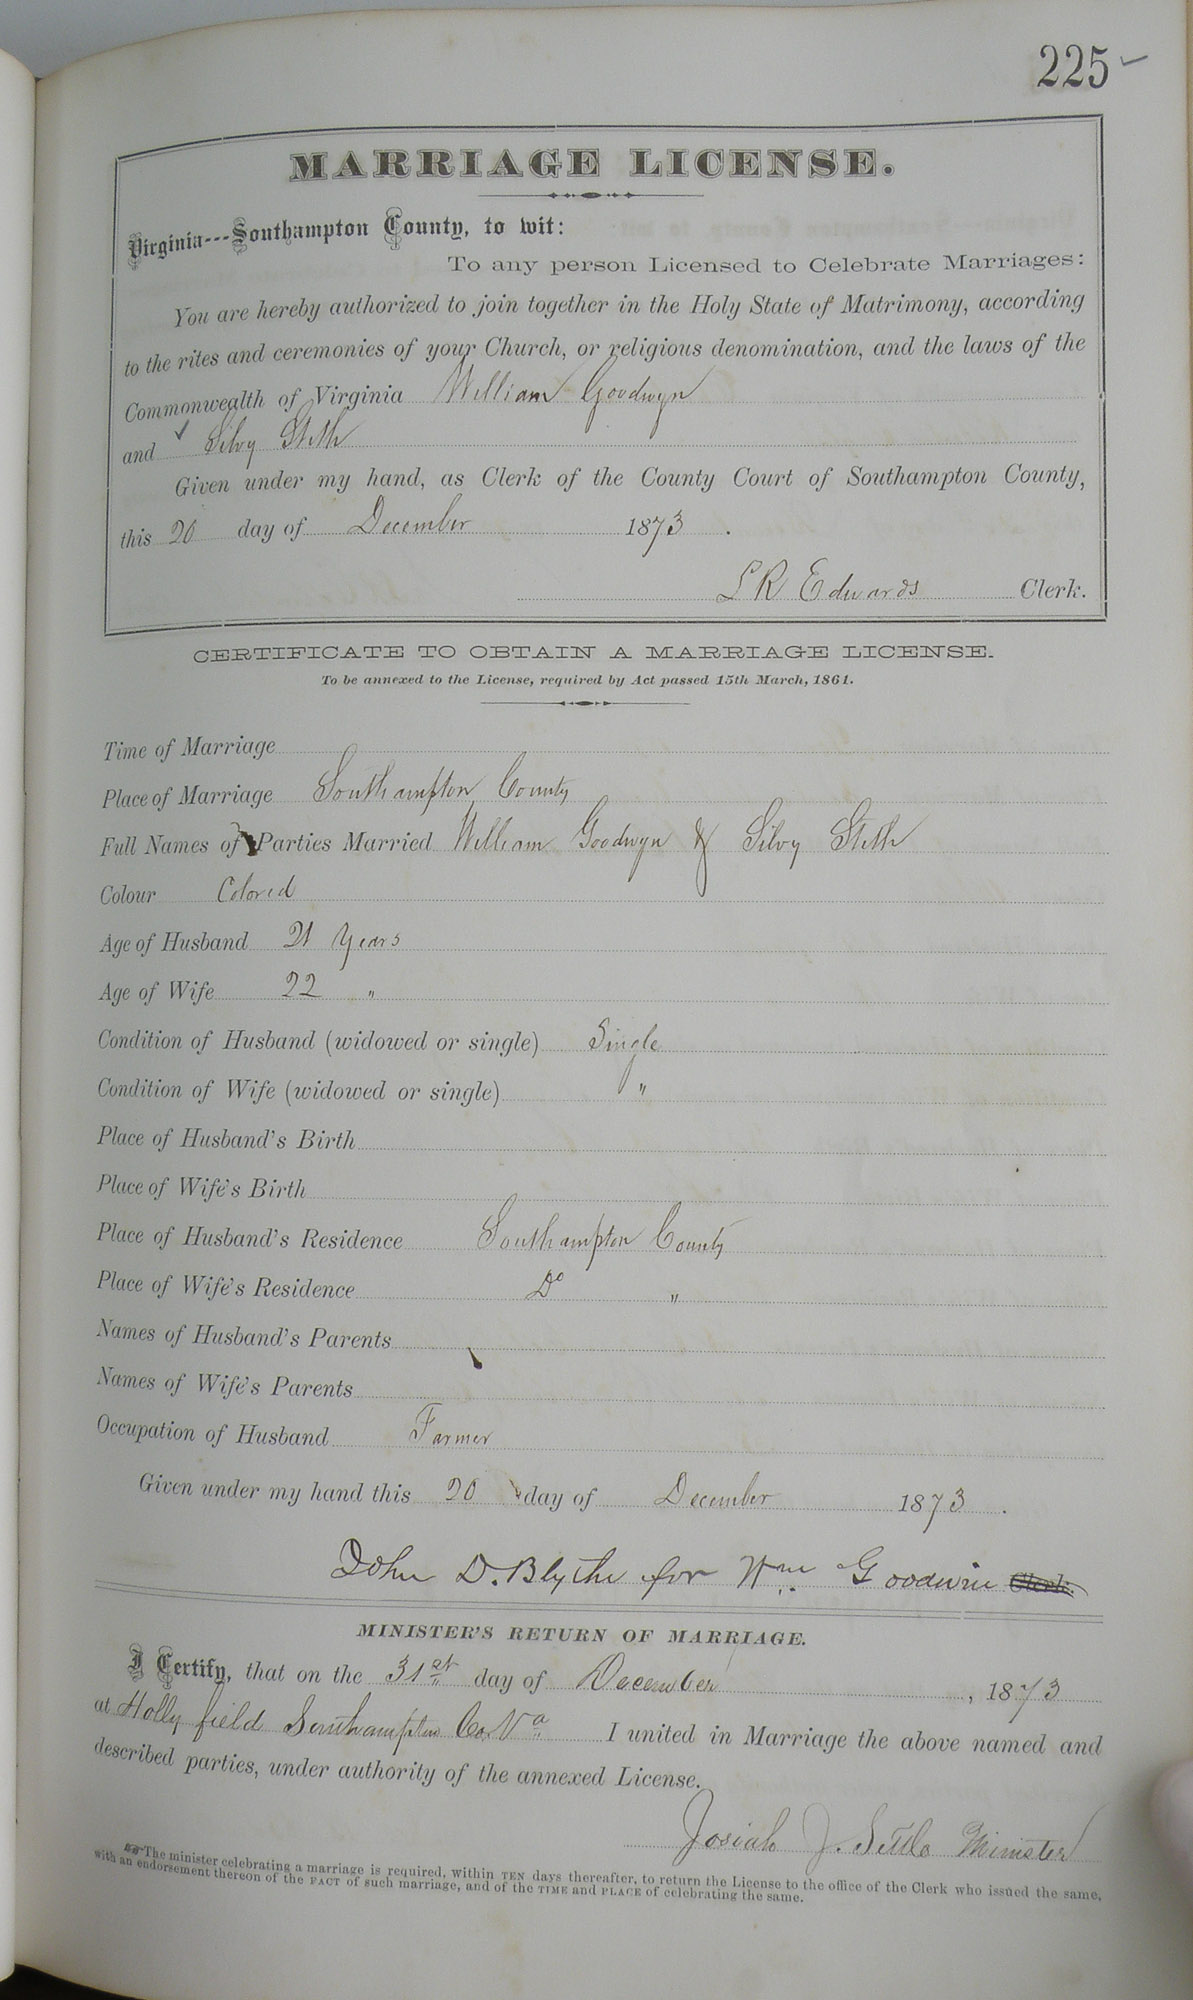 225 ✓
MARRIAGE LICENSE.
Virginia---Southampton County, to wit:
To any person Licensed to Celebrate Marriages:
You are hereby authorized to join together in the Holy State of Matrimony, according
to the rites and ceremonies of your Church, or religious denomination, and the laws of the
Commonwealth of Virginia William Goodwyn
and ✓ Silvy Stith
Given under my hand, as Clerk of the County Court of Southampton County,
this 20 day of December 1873.
L R Edwards Clerk.
CERTIFICATE TO OBTAIN A MARRIAGE LICENSE.
To be annexed to the License, required by Act passed 15th March, 1861.
Time of Marriage
Place of Marriage Southampton County
Full Names of Parties Married William Goodwyn & Silvy Stith
Colour Colored
Age of Husband 21 Years
Age of Wife 22 "
Condition of Husband (widowed or single) Single
Condition of Wife (widowed or single) "
Place of Husband's Birth
Place of Wife's Birth
Place of Husband's Residence Southampton County
Place of Wife's Residence Do "
Names of Husband's Parents
Names of Wife's Parents
Occupation of Husband Farmer
Given under my hand this 20 day of December 1873.
John D. Blythe for Wm. Goodwin Clerk.
MINISTER'S RETURN OF MARRIAGE.
I Certify, that on the 31st day of December, 1873
at Holly field Southampton Co. Va I united in Marriage the above named and
described parties, under authority of the annexed License.
Josiah J. Minister
The minister celebrating a marriage is required, within TEN days thereafter, to return the License to the office of the Clerk who issued the same,
with an endorsement thereon of the FACT of such marriage, and of the TIME and PLACE of celebrating the same.